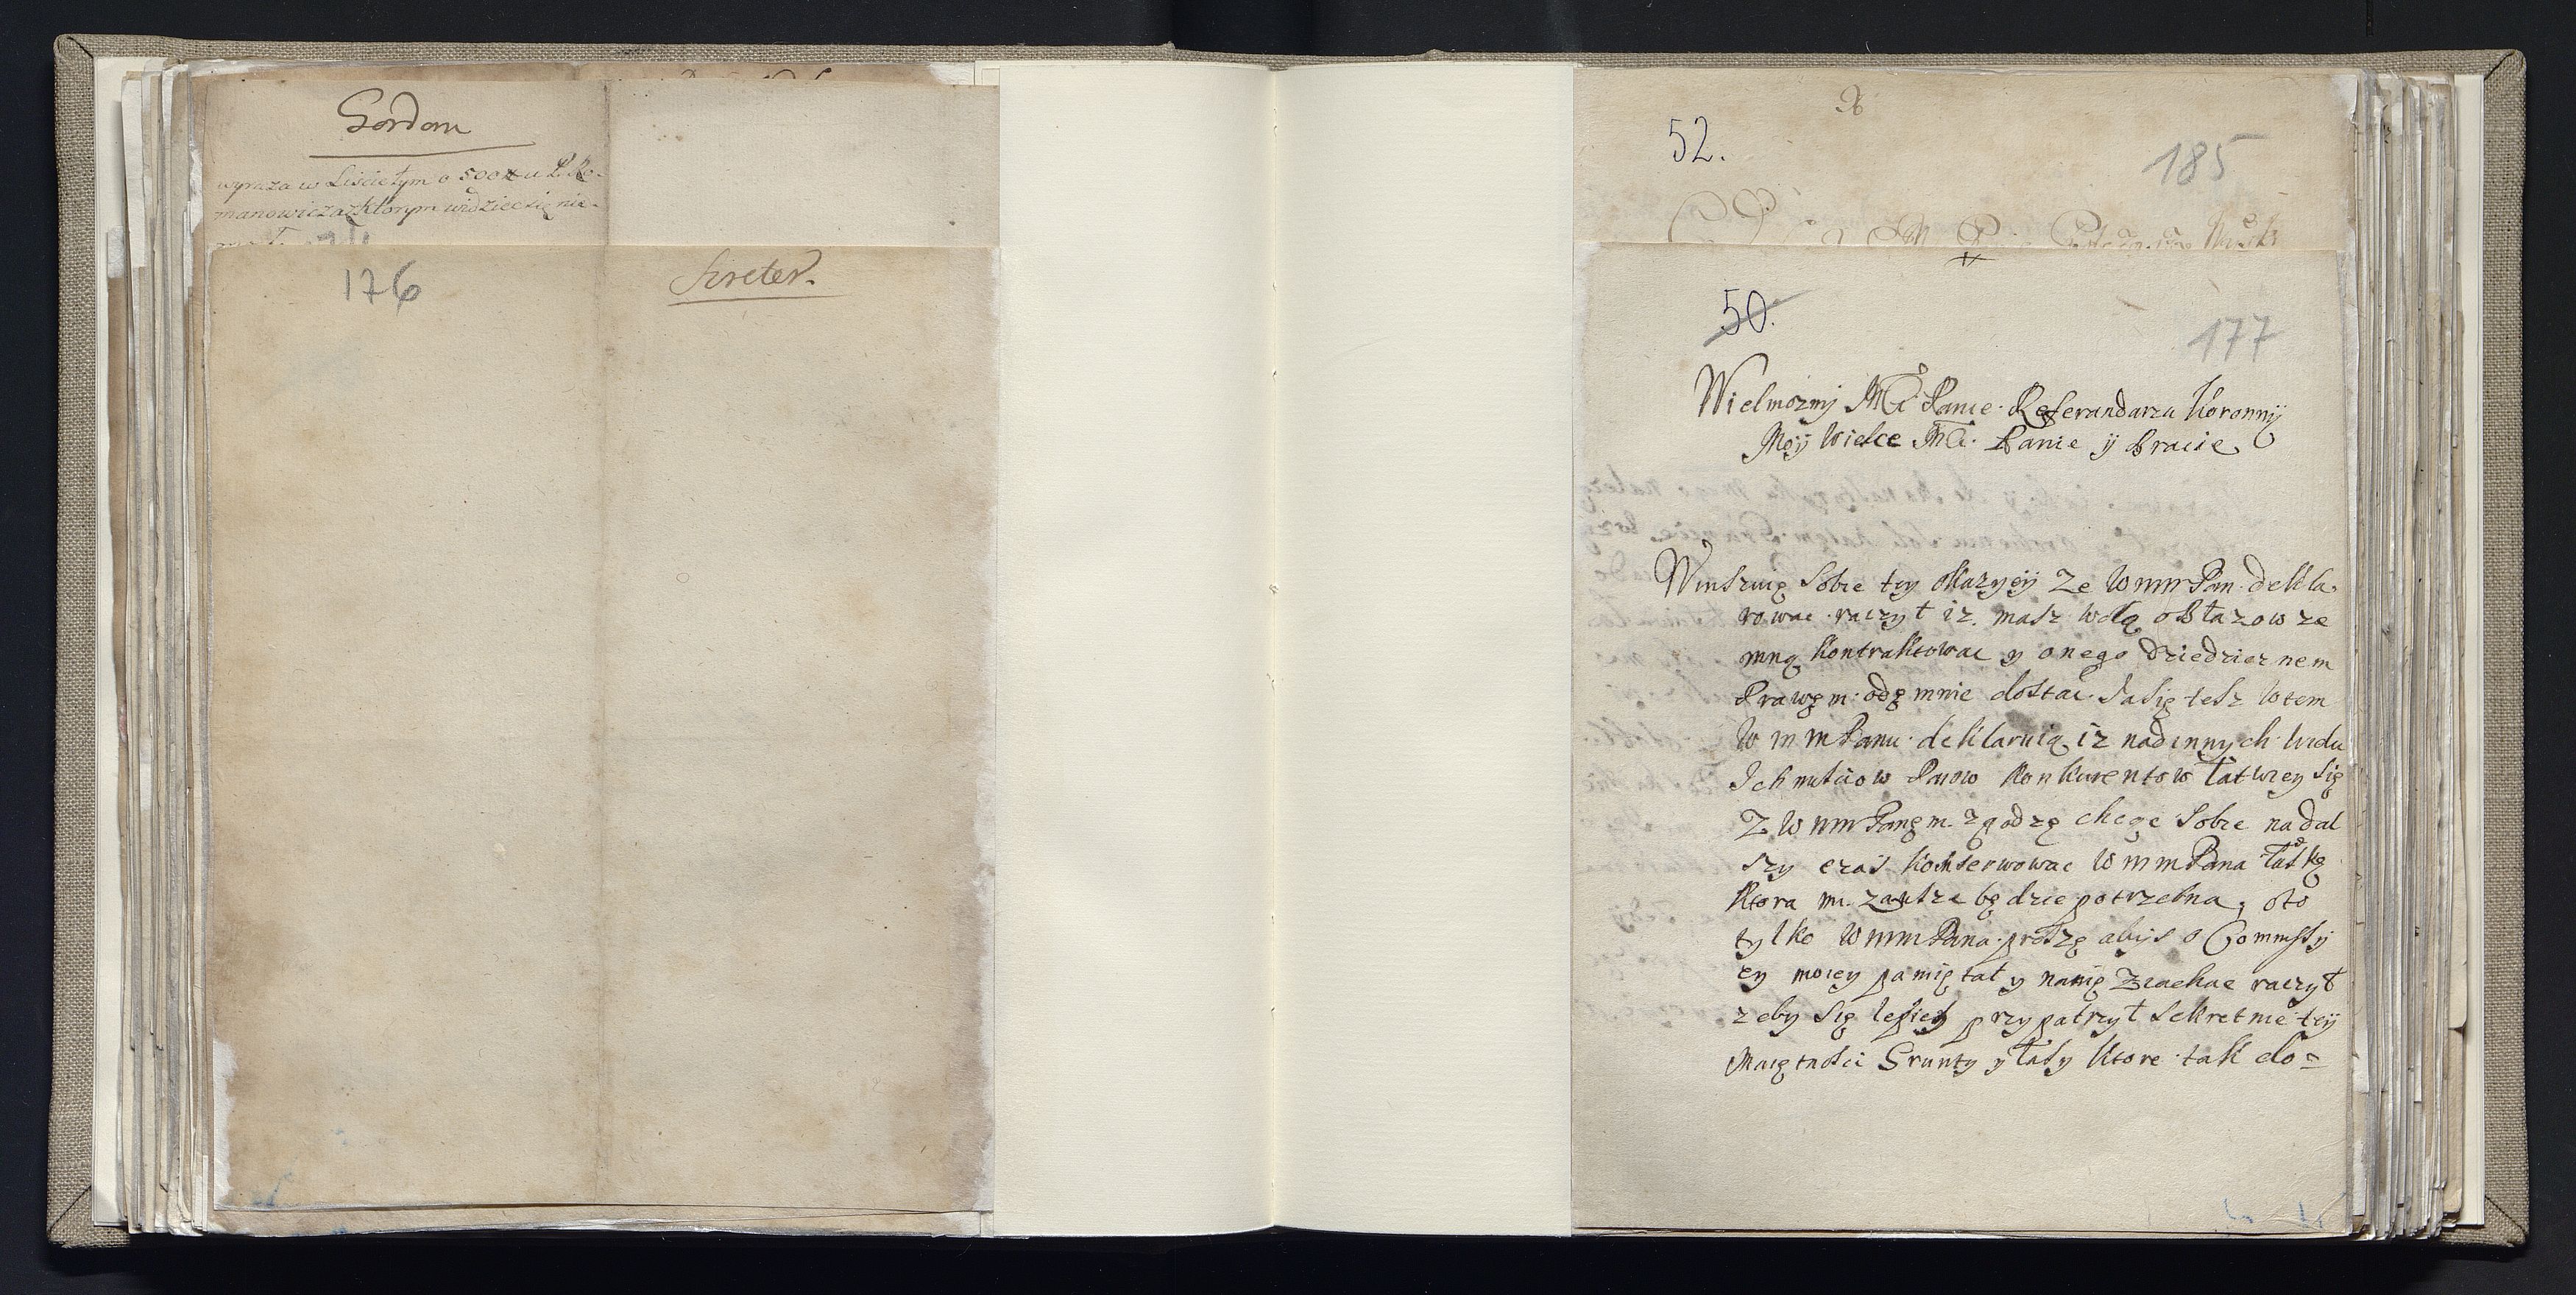 Gordon
wyraza w Liscie tym o 500 # u P. Ro-
manowicza z ktorym widziec się nie-
176
Szreter.
52.
185
50.
177
Wielmozny Mći Panie Referandarzu Koronnÿ
Moÿ Wielce Mći Panie ÿ Bracie
Winszuię Sobie tey okazyeÿ Ze WmmPan dekla
rowac raczył iz masz wolą o Błazow ze
mną kontraktowac y onego dziedzicznem
Prawęm odę mnie dostac. Ja się tesz wtem
WmmPanu deklaruię iz nad innych wielu
Ichmściow Panow Konkurentow łatwiey się
Z WmmPanęm zgodzę chcąc Sobie na dal
szy czas konserwowac WmmPana łaskę
Ktora mi zawsze będzie potrzebna, oto
tylko WmmPana proszę abyś o Commissÿ
ey moiey pamiętał y nanię ziachac raczył
zeby się lepiey przypatrzył sekretnie teÿ
Maiętności Grunty y łasy ktore tak do=